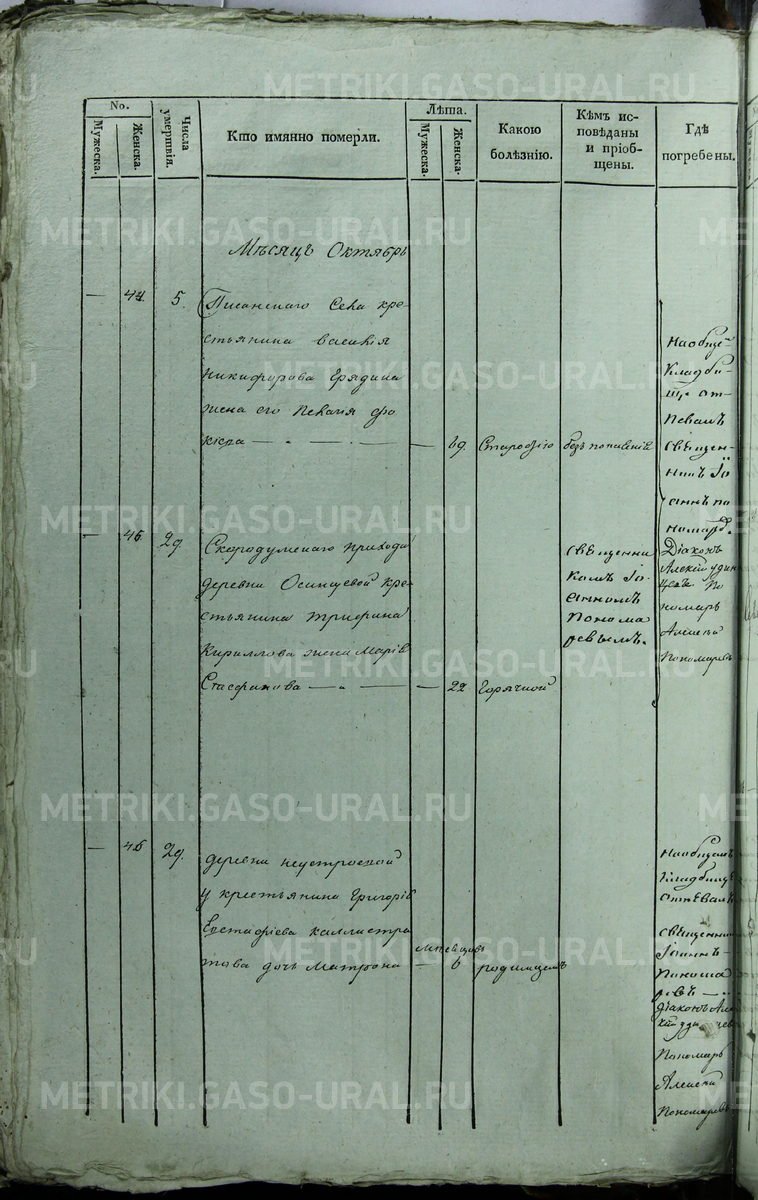 METRIKI.GASO-URAL.RU
No.
Мужеска.
Женска.
Числа умертвія.
Кто имянно померли.
Лѣта.
Мужеска.
Женска.
Какою
болѣзнію.
Кѣмъ ис-
повѣданы
и пріоб-
щены.
Гдѣ
погребены.
Мѣсяцъ Октябрь
— 44 5. Писанскаго Села кре-
стьянина василія
никифорова
жена его Пелагія
— 69. Старостію
наобще
кладби-
щѣ от-
певалъ
священ-
никъ Іо
аннъ по
номарев.
— 45 29. Скородумскаго прихода
деревни Осинцевой кре-
стьянина трифона
Кириллова жена Марія
Стефанова — — 22 Горячкой
священни
комъ Іо-
анномъ
Понома
ревымъ.
Діаконъ
Алексій удин
цевъ По
номарь
Алексей
Пономаревъ
— 46 29. деревни неустроевой
у крестьянина Григорія
Евстафіева каллистра
това дочь Матрона
мѣсяцовъ
— 6 родимцемъ
наобщемъ
кладбищѣ
отпѣвалъ
священник
Іоаннъ
Понома
ревъ —
діаконъ Але
Пономарь
Алексей
Пономаревъ